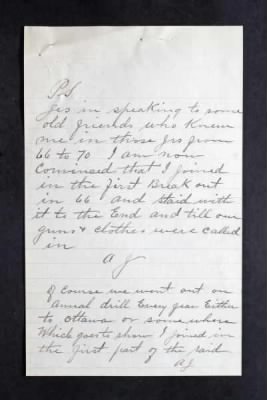 P.S.
Yes in speaking to some
old friends who Knew
me in those yrs from
66 to 70 I am now
Convinced that I joined
in the first Break out
in 66 and Staid with
it to the End and till our
guns & clothes were called
in
A J
Of Course we went out on
Annual drill Every year Either
to Ottawa or somewhere
Which goes to show I joined in
the first part of the raid
A J